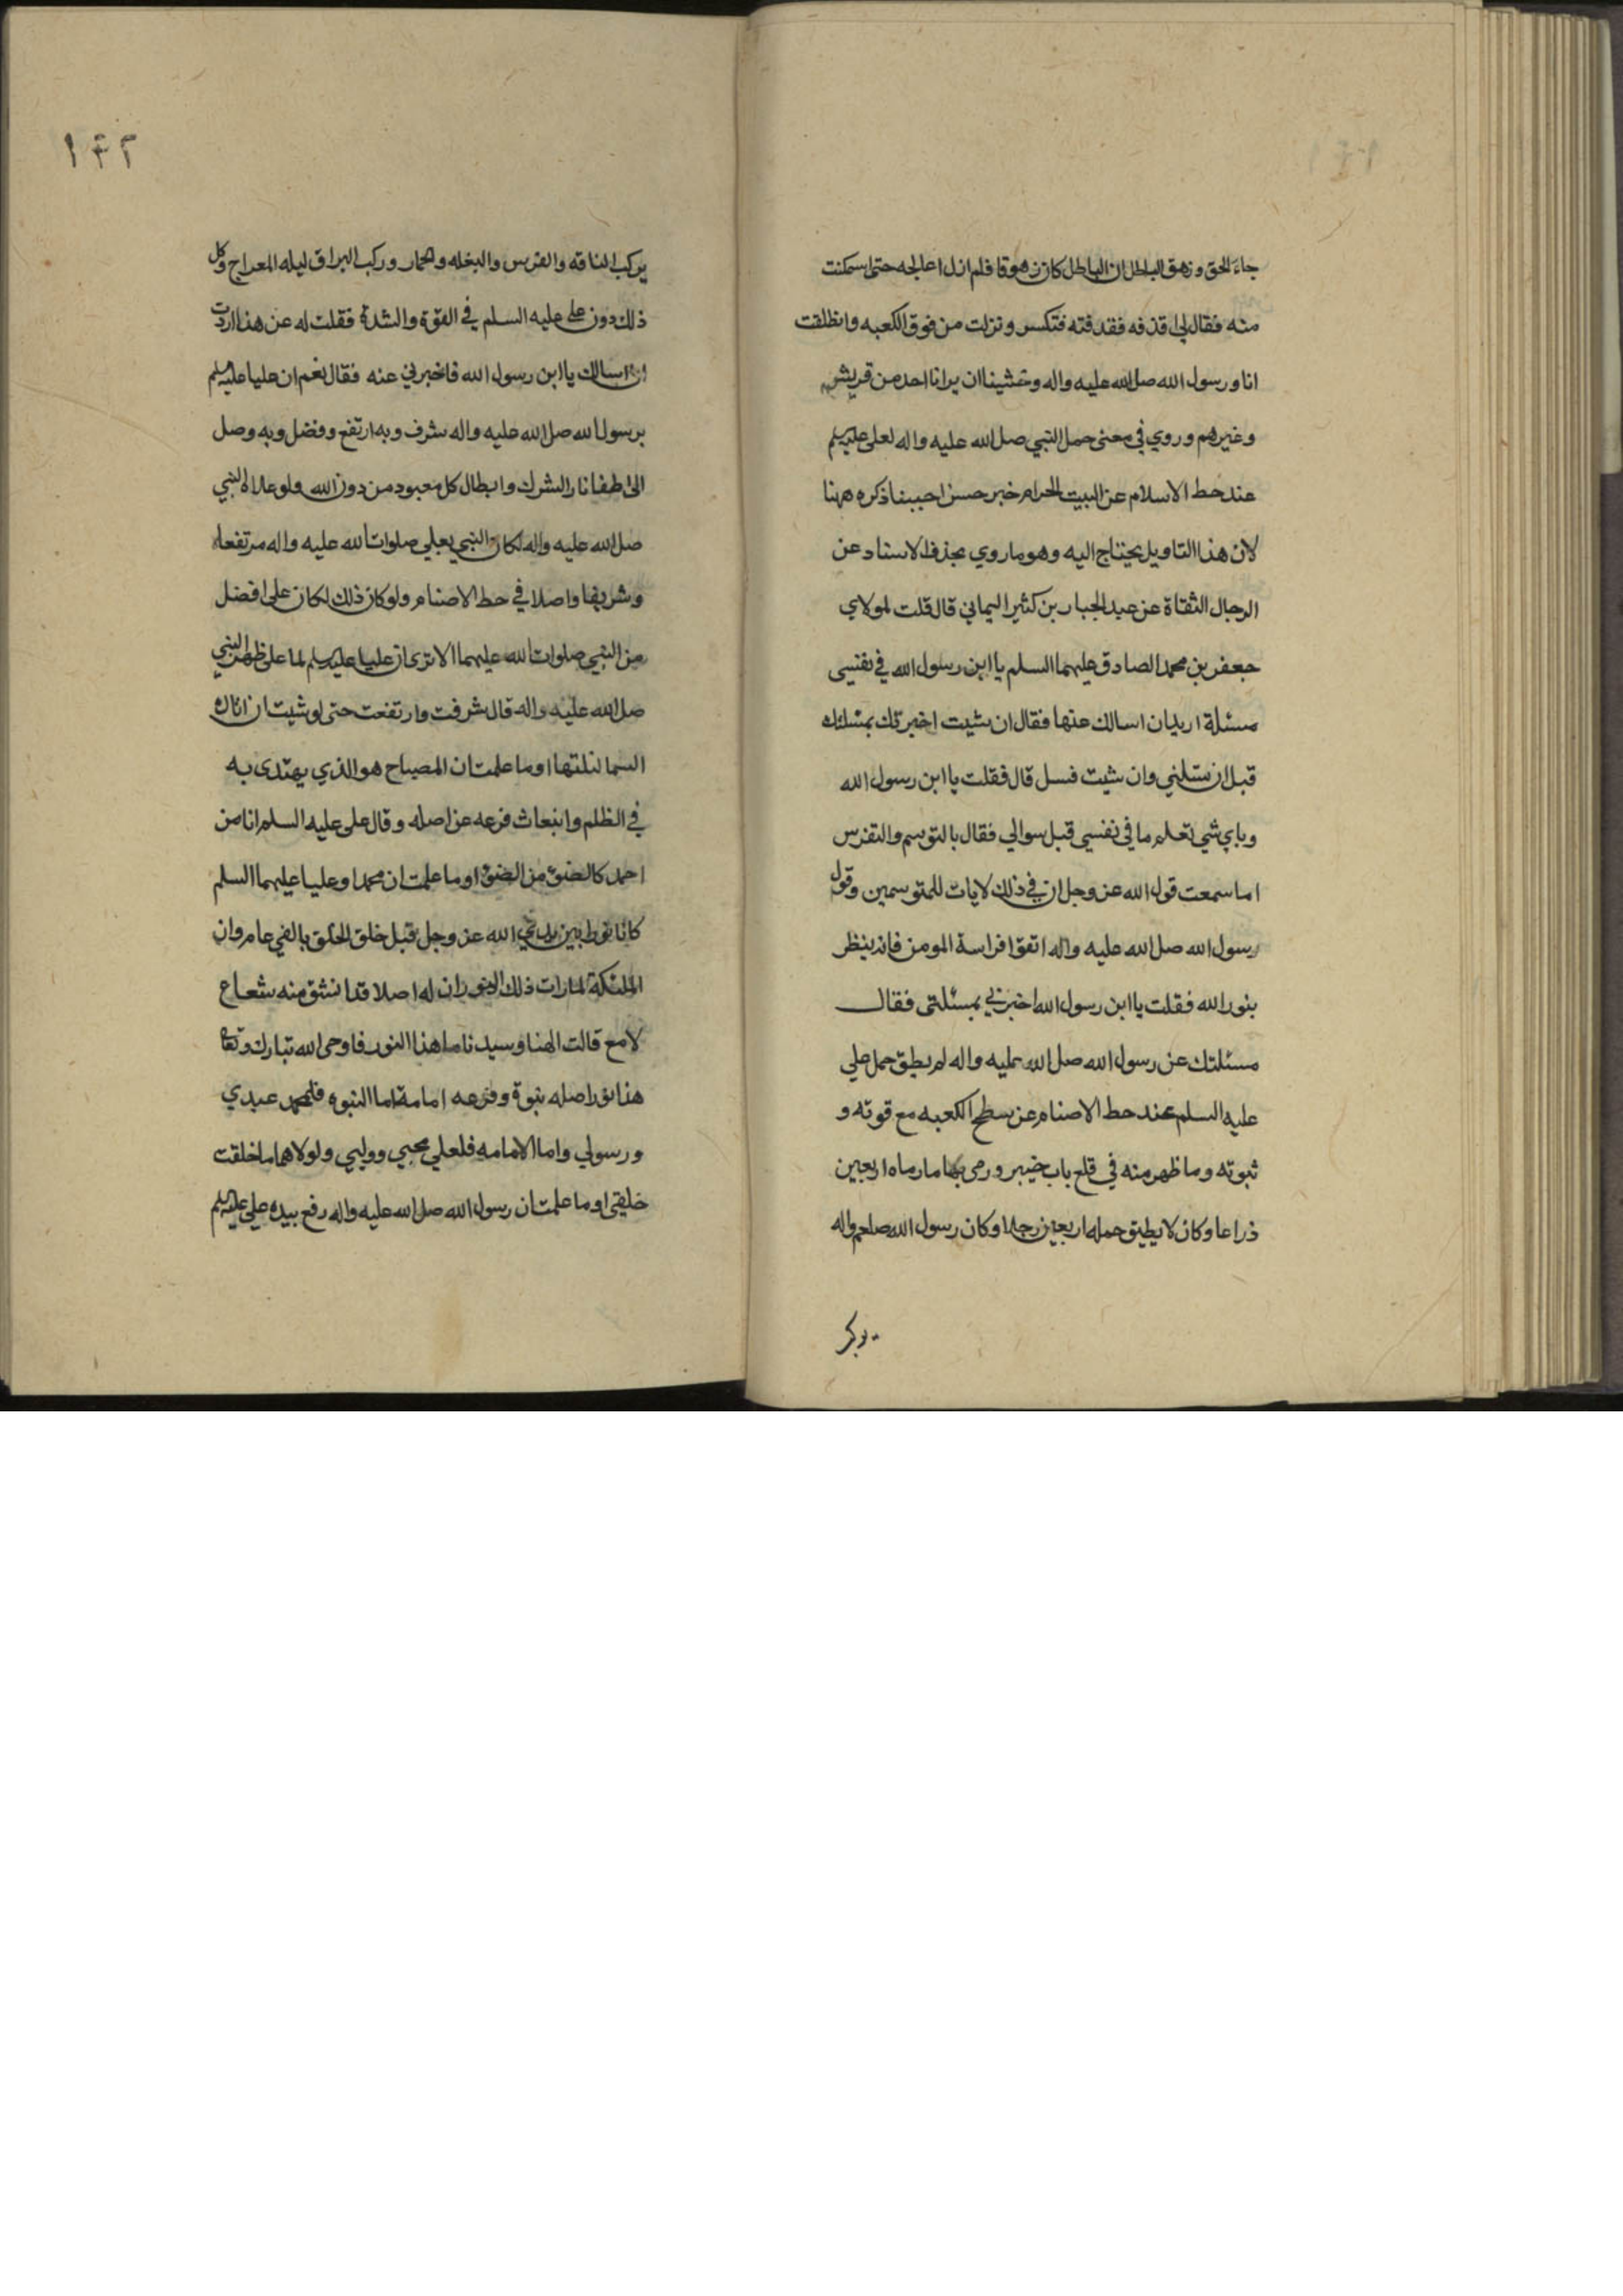 جاءَ الحق وزهق الباطل ان الباطل كان زهوقا فلم ازل اعالجه حتى استمكنت
منه فقال لي اقذفه فقذفته فتكسر ونزلت من فوق الكعبه وانطلقت
انا ورسول الله صل الله عليه واله وخشينا ان يرانا احد من قريش
وغيرهم وروي في معنى حمل النبي صل الله عليه واله لعلى عليه السلم
عند حط الاصنام عن البيت الحرام خبر حسن احببنا ذكره ههنا
لان هذا التاويل يحتاج اليه وهو ما روي بحذف الاسناد عن
الرجال الثقاة عن عبد الجبار بن كثير اليماني قال قلت لمولاي
جعفر بن محمد الصادق عليهما السلم يا ابن رسول الله في نفسى
مسئلة اريد ان اسالك عنها فقال ان شيت اخبرتك بمسئلتك
قبل ان تسئلني وان شيت فسل قال فقلت يا ابن رسول الله
وباي شي تعلم ما في نفسي قبل سوالي فقال بالتوسم والتفرس
اما سمعت قول الله عز وجل ان في ذلك لايات للمتوسمين وقول
رسول الله صل الله عليه واله اتقوا فراسة المومن فانه ينظر
بنور الله فقلت يا ابن رسول الله اخبرني بمسئلتى فقال
مسئلتك عن رسول الله صل الله عليه واله لم يطق حمل علي
عليه السلم عند حط الاصنام عن سطح الكعبه مع قوته و
ثبوته وما ظهر منه في قلع باب خيبر ورمى بها ما رماه اربعين
ذراعا وكان لا يطيق حمله اربعين رجلا وكان رسول الله صلعم واله
يركب
١٤٢
يركب الناقه والفرس والبغله والحمار وركب البراق ليله المعراج وكل
ذلك دون على عليه السلم في القوة والشدة فقلت له عن هذا اردت
ان اسالك يا ابن رسول الله فاخبرني عنه فقال نعم ان عليا عليه السلم
برسول الله صل الله عليه واله شرف وبه ارتفع وفضل وبه وصل
الى اطفا نار الشرك وابطال كل معبود من دون الله ولو علاه النبي
صل الله عليه واله لكان النبي بعلي صلوات الله عليه واله مرتفعا
وشريفا واصلا في حط الاصنام ولو كان ذلك لكان على افضل
من النبي صلوات الله عليهما الا ترى ان عليا عليه السلم لما على ظهر النبي
صل الله عليه واله قال شرفت وارتفعت حتى لو شيت ان انال
السما لنلتها اوما علمت ان المصباح هو الذي يهتدى به
في الظلم وانبعاث فرعه عن اصله وقال على عليه السلم انا من
احمد كالضوء من الضوء اوما علمت ان محمدا وعليا عليهما السلم
كانا نورا بين يدي الله عز وجل قبل خلق الخلق بالفي عام وان
الملئكة لما رات ذلك النور ان له اصلا قد انشق منه شعاع
لامع قالت الهنا وسيدنا ما هذا النور فاوحى الله تبارك وتعا
هذا نور اصله نبوة وفرعه امامة اما النبوه فلمحمد عبدي
ورسولي واما الامامه فلعلي محبي ووليي ولولاهما ما خلقت
خلقى اوما علمت ان رسول الله صل الله عليه واله رفع بيده على عليه السلم